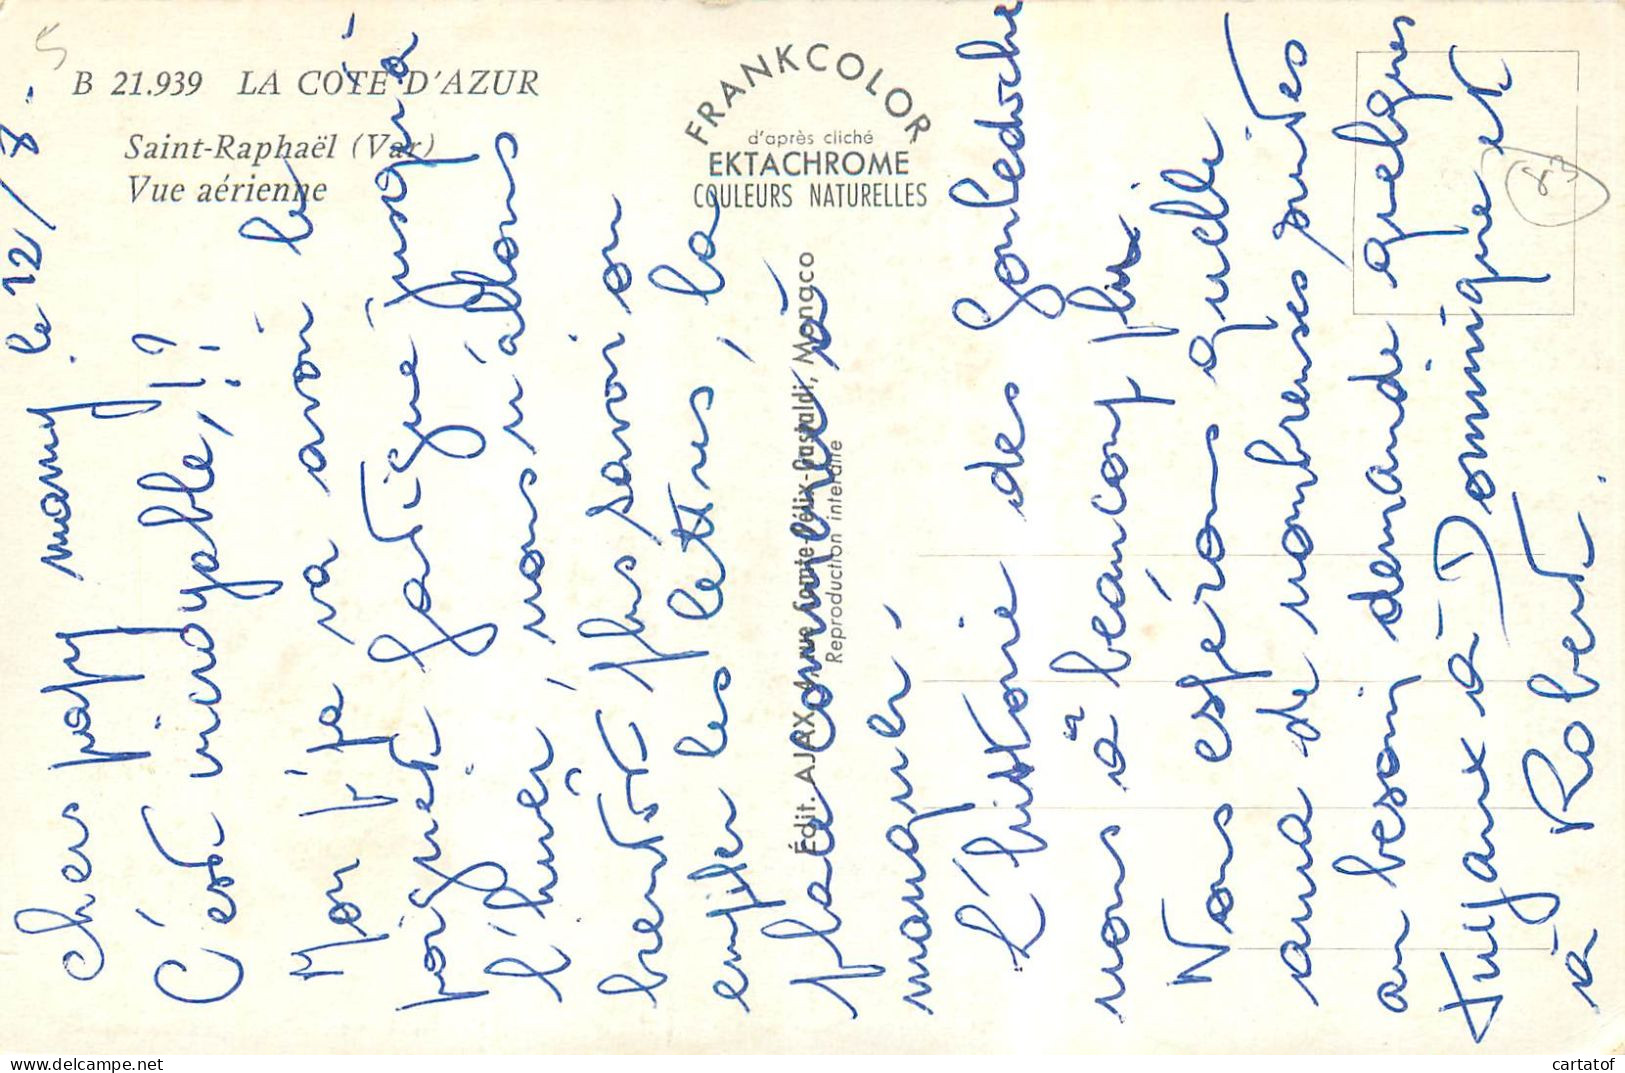 B 21.939 LA COTE D'AZUR
Saint-Raphaël (Var)
Vue aérienne
FRANKCOLOR
d'après cliché
EKTACHROME
COULEURS NATURELLES
Édit. AJAX, Monaco
Reproduction interdite
le 12/8.
chers papy mamy
C'est incroyable, !?
Mon va avoir le
poignet fatigué jusqu'à
l'hiver, nous n'allons
bientôt plus savoir où
enfiler les lettres, la
place commence à
manquer,
L'histoire des
nous a beaucoup plu
Nous espérons quelle
aura de nombreuses suites
au besoin demande quelques
tuyaux à Dominique et
à Robert.
83
cartatof